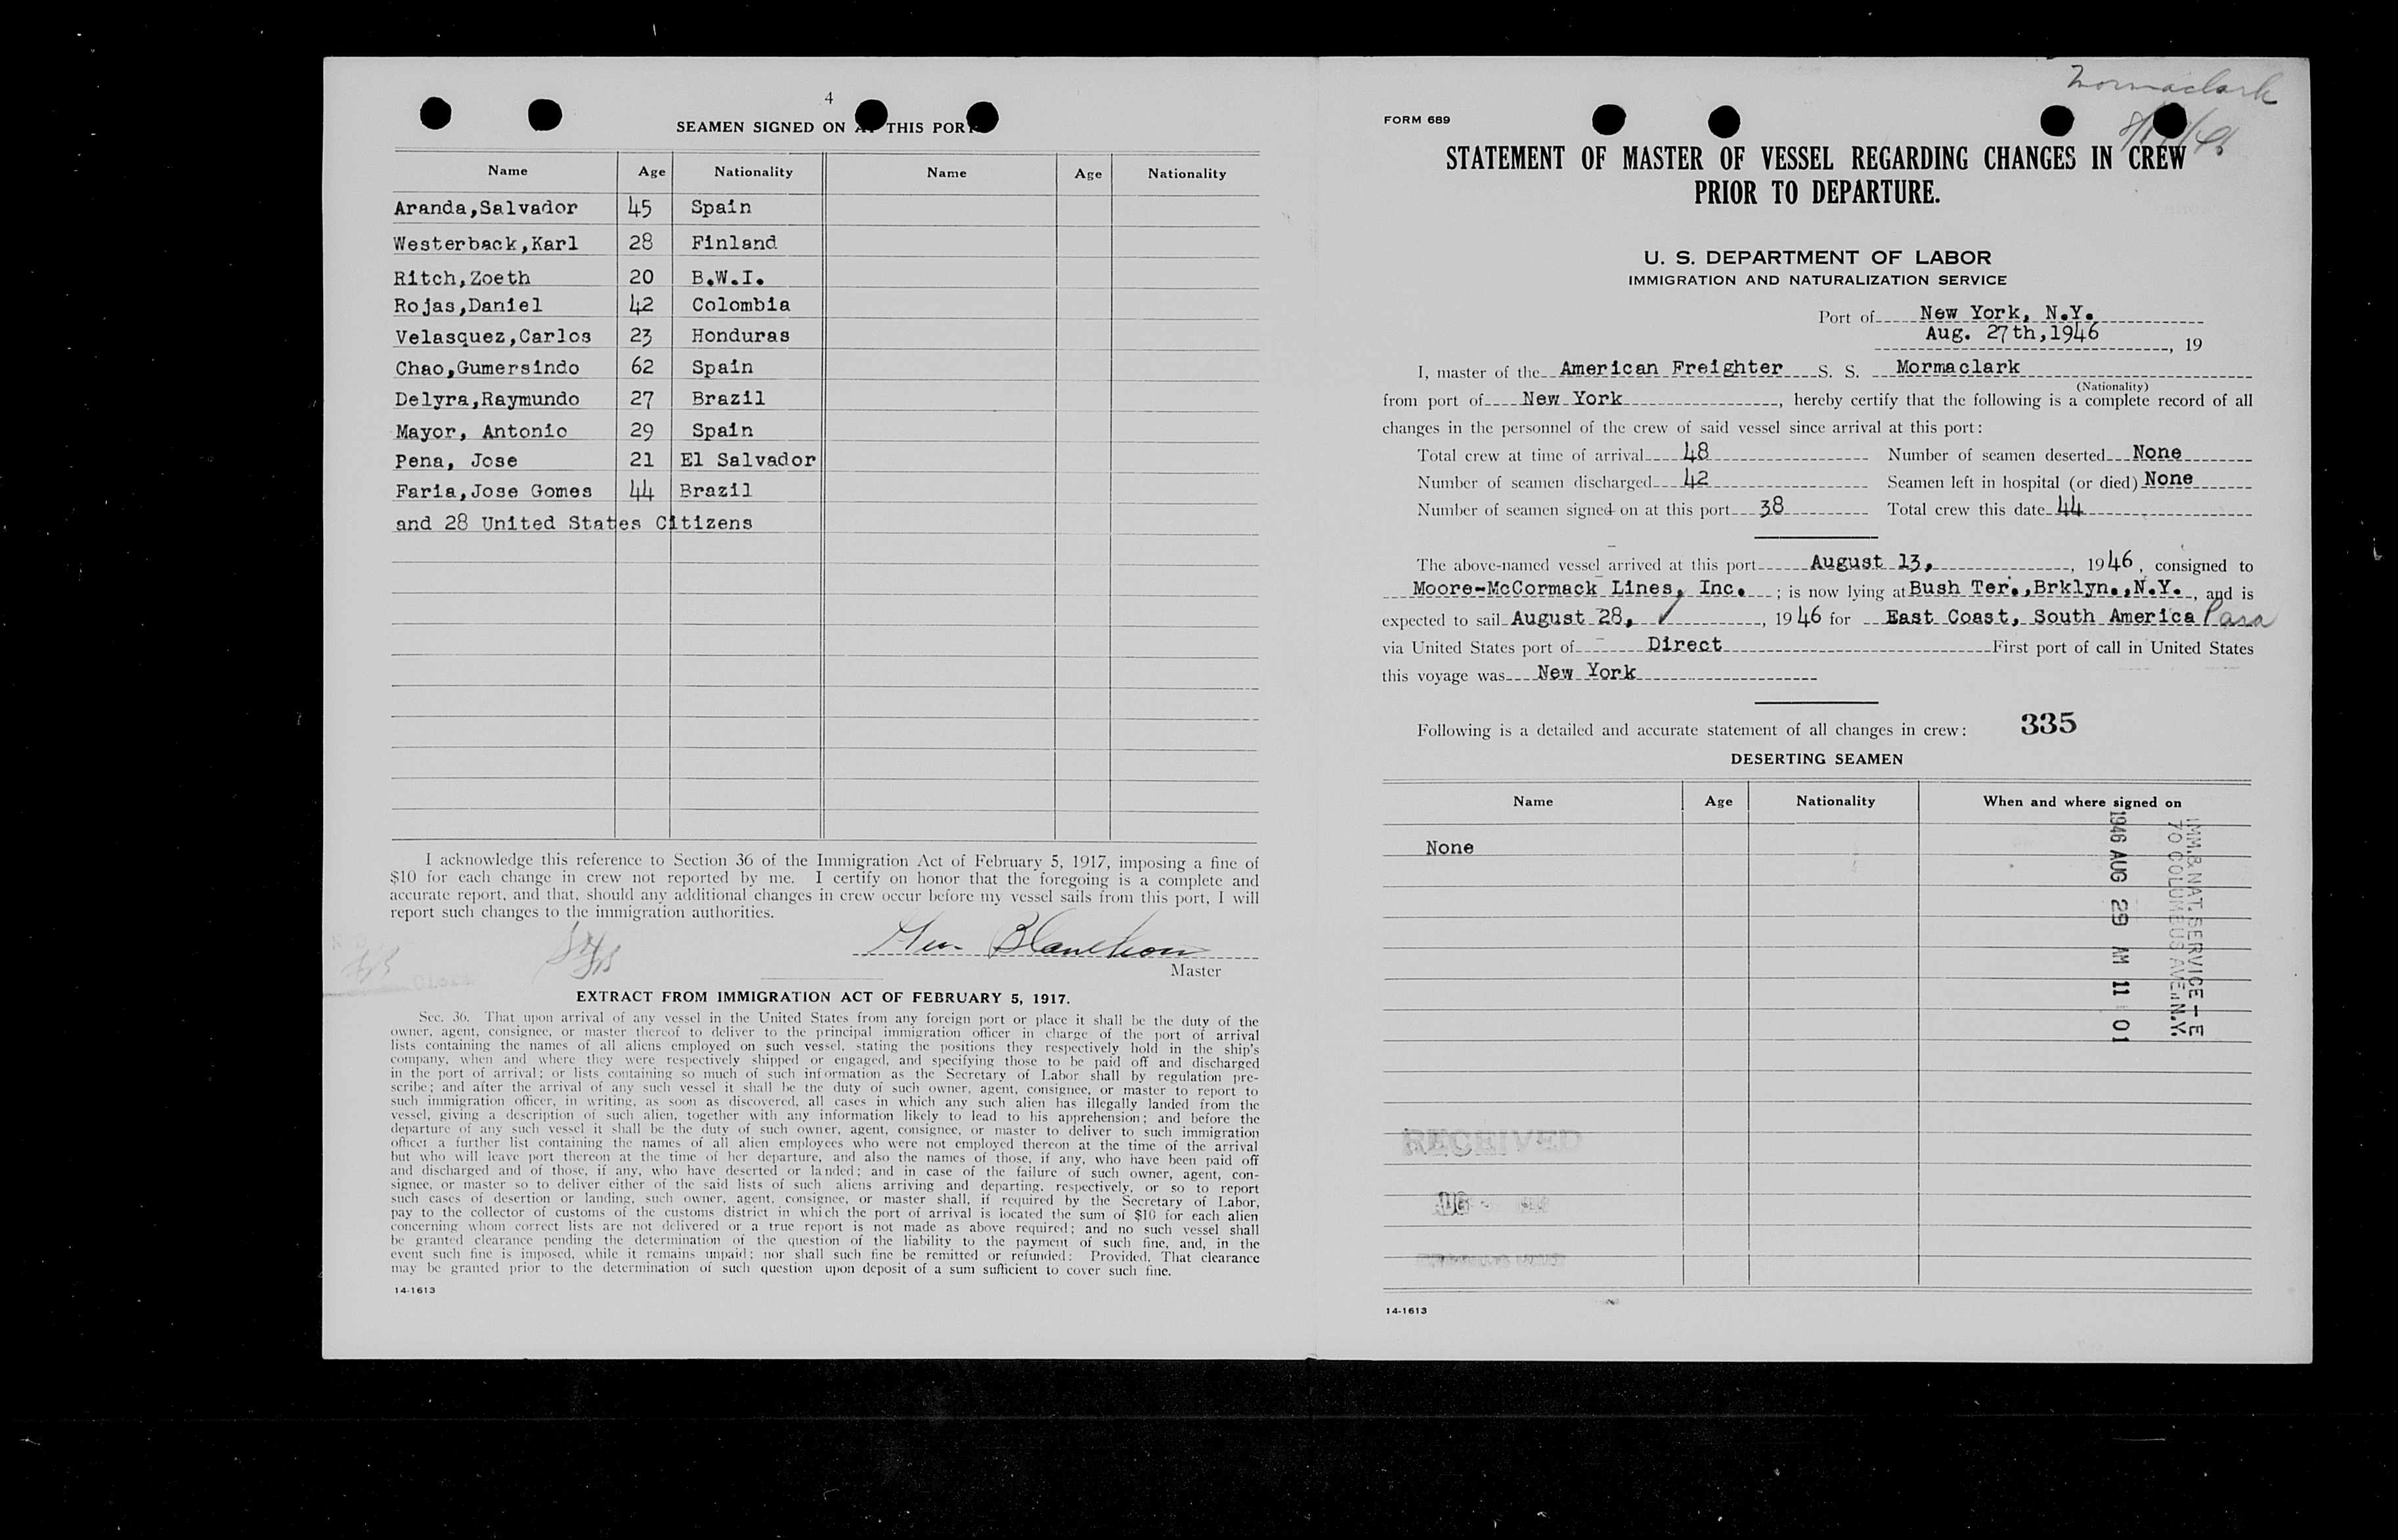 4
SEAMEN SIGNED ON AT THIS PORT
Name Age Nationality Name Age Nationality
Aranda,Salvador 45 Spain
Westerback,Karl 28 Finland
Ritch,Zoeth 20 B.W.I.
Rojas,Daniel 42 Colombia
Velasquez,Carlos 23 Honduras
Chao,Gumersindo 62 Spain
Delyra,Raymundo 27 Brazil
Mayor, Antonio 29 Spain
Pena, Jose 21 El Salvador
Faria,Jose Gomes 44 Brazil
and 28 United States Citizens
I acknowledge this reference to Section 36 of the Immigration Act of February 5, 1917, imposing a fine of
$10 for each change in crew not reported by me. I certify on honor that the foregoing is a complete and
accurate report, and that, should any additional changes in crew occur before my vessel sails from this port, I will
report such changes to the immigration authorities.
Master
EXTRACT FROM IMMIGRATION ACT OF FEBRUARY 5, 1917.
Sec. 36. That upon arrival of any vessel in the United States from any foreign port or place it shall be the duty of the
owner, agent, consignee, or master thereof to deliver to the principal immigration officer in charge of the port of arrival
lists containing the names of all aliens employed on such vessel, stating the positions they respectively hold in the ship's
company, when and where they were respectively shipped or engaged, and specifying those to be paid off and discharged
in the port of arrival; or lists containing so much of such information as the Secretary of Labor shall by regulation pre-
scribe; and after the arrival of any such vessel it shall be the duty of such owner, agent, consignee, or master to report to
such immigration officer, in writing, as soon as discovered, all cases in which any such alien has illegally landed from the
vessel, giving a description of such alien, together with any information likely to lead to his apprehension; and before the
departure of any such vessel it shall be the duty of such owner, agent, consignee, or master to deliver to such immigration
officer a further list containing the names of all alien employees who were not employed thereon at the time of the arrival
but who will leave port thereon at the time of her departure, and also the names of those, if any, who have been paid off
and discharged and of those, if any, who have deserted or landed; and in case of the failure of such owner, agent, con-
signee, or master so to deliver either of the said lists of such aliens arriving and departing, respectively, or so to report
such cases of desertion or landing, such owner, agent, consignee, or master shall, if required by the Secretary of Labor,
pay to the collector of customs of the customs district in which the port of arrival is located the sum of $10 for each alien
concerning whom correct lists are not delivered or a true report is not made as above required; and no such vessel shall
be granted clearance pending the determination of the question of the liability to the payment of such fine, and, in the
event such fine is imposed, while it remains unpaid; nor shall such fine be remitted or refunded: Provided, That clearance
may be granted prior to the determination of such question upon deposit of a sum sufficient to cover such fine.
14-1613
Mormaclark
FORM 689
STATEMENT OF MASTER OF VESSEL REGARDING CHANGES IN CREW
PRIOR TO DEPARTURE.
U. S. DEPARTMENT OF LABOR
IMMIGRATION AND NATURALIZATION SERVICE
Port of New York, N.Y.
Aug. 27th,1946 , 19
I, master of the American Freighter S. S. Mormaclark
(Nationality)
from port of New York , hereby certify that the following is a complete record of all
changes in the personnel of the crew of said vessel since arrival at this port:
Total crew at time of arrival 48 Number of seamen deserted None
Number of seamen discharged 42 Seamen left in hospital (or died) None
Number of seamen signed on at this port 38 Total crew this date 44
The above-named vessel arrived at this port August 13, , 1946, consigned to
Moore-McCormack Lines, Inc. ; is now lying at Bush Ter.,Brklyn.,N.Y. , and is
expected to sail August 28, , 1946 for East Coast, South America Para
via United States port of Direct First port of call in United States
this voyage was New York
Following is a detailed and accurate statement of all changes in crew: 335
DESERTING SEAMEN
Name Age Nationality When and where signed on
None
IMM. & NAT. SERVICE - E
70 COLUMBUS AVE., N.Y.
1946 AUG 29 AM 11 01
RECEIVED
14-1613